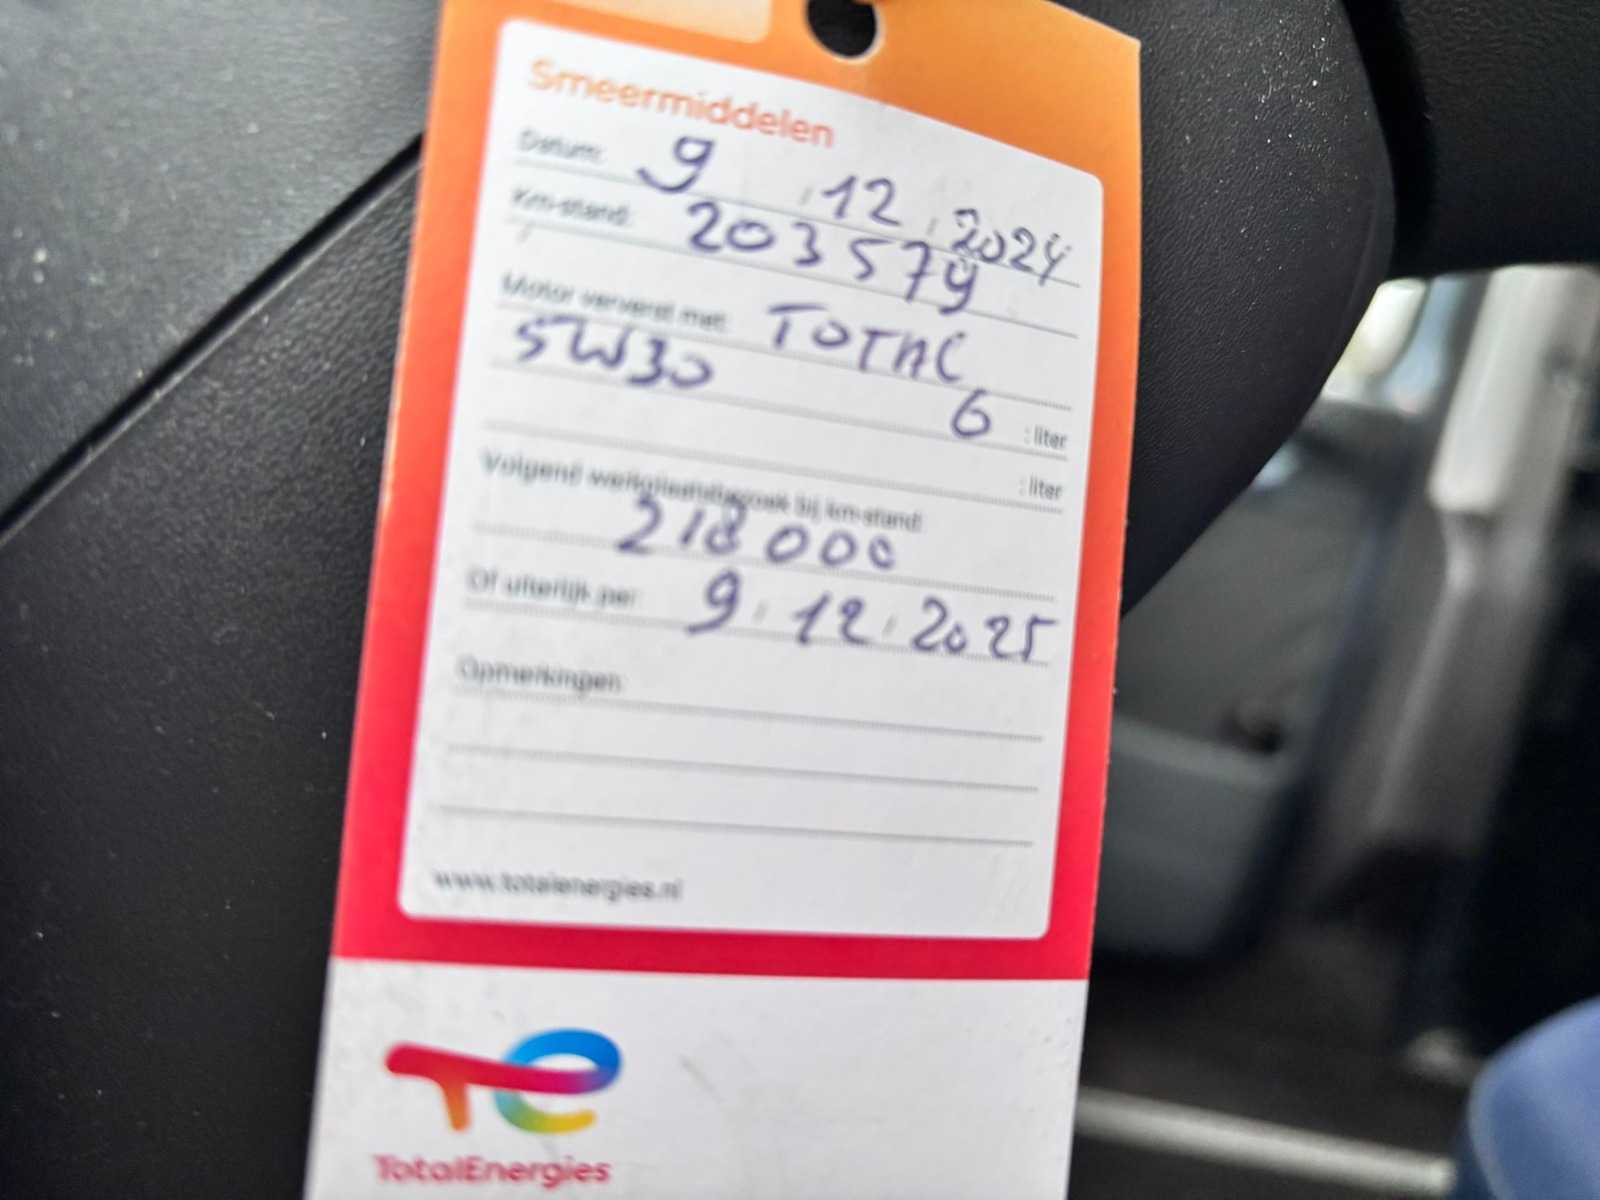 Smeermiddelen
Datum: 9 . 12 . 2024
Km-stand: 203579
Motor ververst met: TOTAL
5W30 6 : liter
: liter
Volgend werkplaatsbezoek bij km-stand:
218 000
Of uiterlijk per: 9 . 12 . 2025
Opmerkingen:
www.totalenergies.nl
TotalEnergies